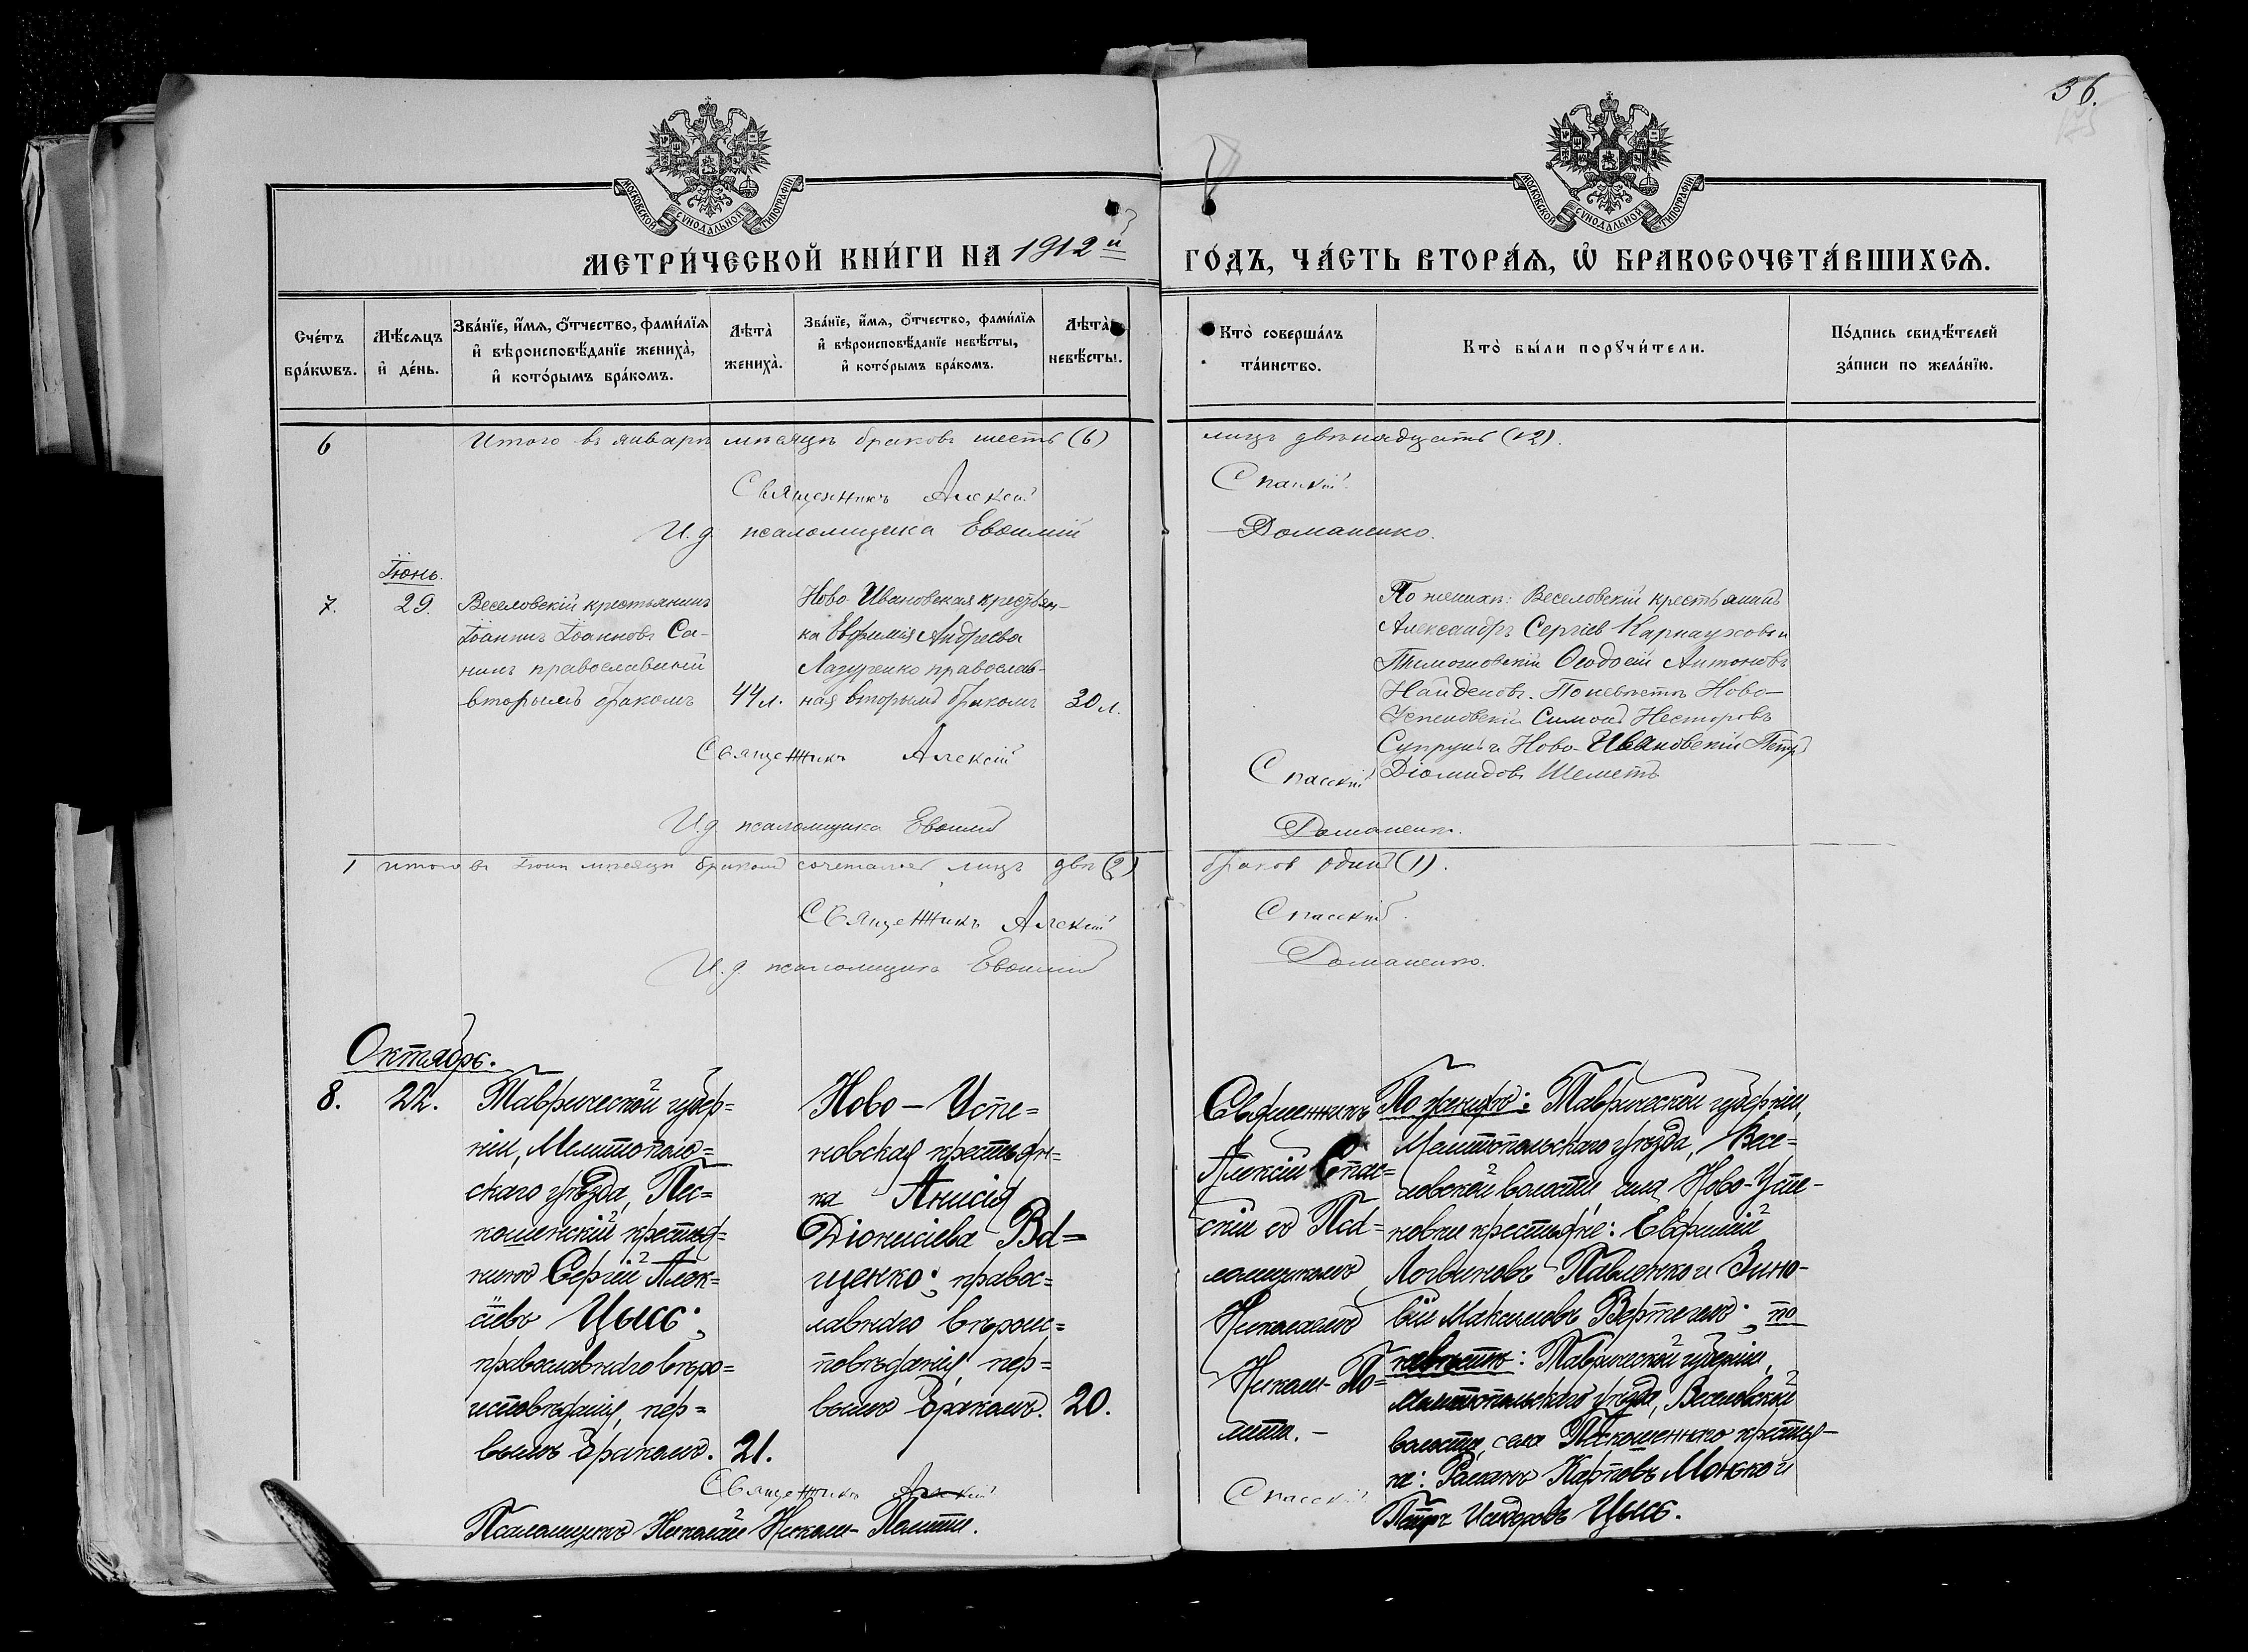 36.
МОСКОВСКОЙ СѴНОДАЛЬНОЙ ТИПОГРАФІИ
МОСКОВСКОЙ СѴНОДАЛЬНОЙ ТИПОГРАФІИ
МЕТРИ́ЧЕСКОЙ КНИ́ГИ НА 1912й ГО́ДЪ, ЧА́СТЬ ВТОРА́Ѧ, Ѡ҆ БРАКОСОЧЕТА́ВШИХСѦ.
Сче́тъ бра́кѡвъ.
Мѣ́сѧцъ и҆ де́нь.
Зва́нїе, и҆́мѧ, ѻ҆́тчество, фами́лїѧ и҆ вѣроисповѣ́данїе жениха̀, и҆ кото́рымъ бра́комъ.
Лѣта̀ жениха̀.
Зва́нїе, и҆́мѧ, ѻ҆́тчество, фами́лїѧ и҆ вѣроисповѣ́данїе невѣ́сты, и҆ кото́рымъ бра́комъ.
Лѣта̀ невѣ́сты.
Кто̀ соверша́лъ та́инство.
Кто̀ бы́ли порꙋчи́тели.
По́дпись свидѣ́телей за́писи по жела́нїю.
6 Итого въ январѣ мѣсяцѣ браковъ шесть (6) лицъ двѣнадцать (12).
Священникъ Алексій Спасскій
И. д. псаломщика Евѳимій Доманенко.
Іюнь.
7. 29.
Веселовскій крестьянинъ
Іоаннъ Іоанновъ Са-
нинъ православный
вторымъ бракомъ 44 л.
Ново-Ивановская крестьян-
ка Евфимія Андреева
Лазуренко православ-
ная вторымъ бракомъ 30 л.
По женихѣ: Веселовскій крестьянинъ
Александръ Сергіевъ Карнауховъ и
Тимошовскій Ѳеодосій Антоновъ
Найденовъ. По невѣстѣ Ново-
Успеновскій Симонъ Несторовъ
Супрунъ и Ново-Ивановскій Петръ
Діомидовъ Шеметъ
Священникъ Алексій Спасскій
И. д. псаломщика Евѳимій Доманенко.
1 итого въ Іюнѣ мѣсяцѣ бракомъ сочеталось лицъ двѣ (2) браковъ одинъ (1).
Священникъ Алексій Спасскій.
И. д. псаломщика Евѳимій Доманенко.
Октябрь.
8. 22.
Таврической губер=
ніи, Мелитополь=
скаго уѣзда, Пес=
кошенскій крестья=
нинъ Сергій Алек=
сіевъ Цысь;
православнаго вѣро=
исповѣданія, пер=
вымъ бракомъ. 21.
Ново-Успе=
новская крестьян=
ка Анисія
Діонисіева Ва=
щенко; правос=
лавнаго вѣроис=
повѣданія, пер=
вымъ бракомъ. 20.
Священникъ
Алексій Спас=
скій съ Пса=
ломщикомъ
Николаемъ
Николи-По=
лита.-
По женихѣ: Таврической губерніи,
Мелитопольскаго уѣзда, Весе=
ловской волости села Ново-Успе-
новки крестьяне: Евфимій
Логвиновъ Павленко и Зино-
вій Максимовъ Вертегелъ; по
невѣстѣ: Таврической губерніи,
Мелитопольскаго уѣзда, Веселовской
волости, села Пескошеннаго крестья-
не: Романъ Карповъ Монько и
Петръ Исидоровъ Цысь.
Священникъ Алексій Спасскій
Псаломщикъ Николай Николи-Полита.